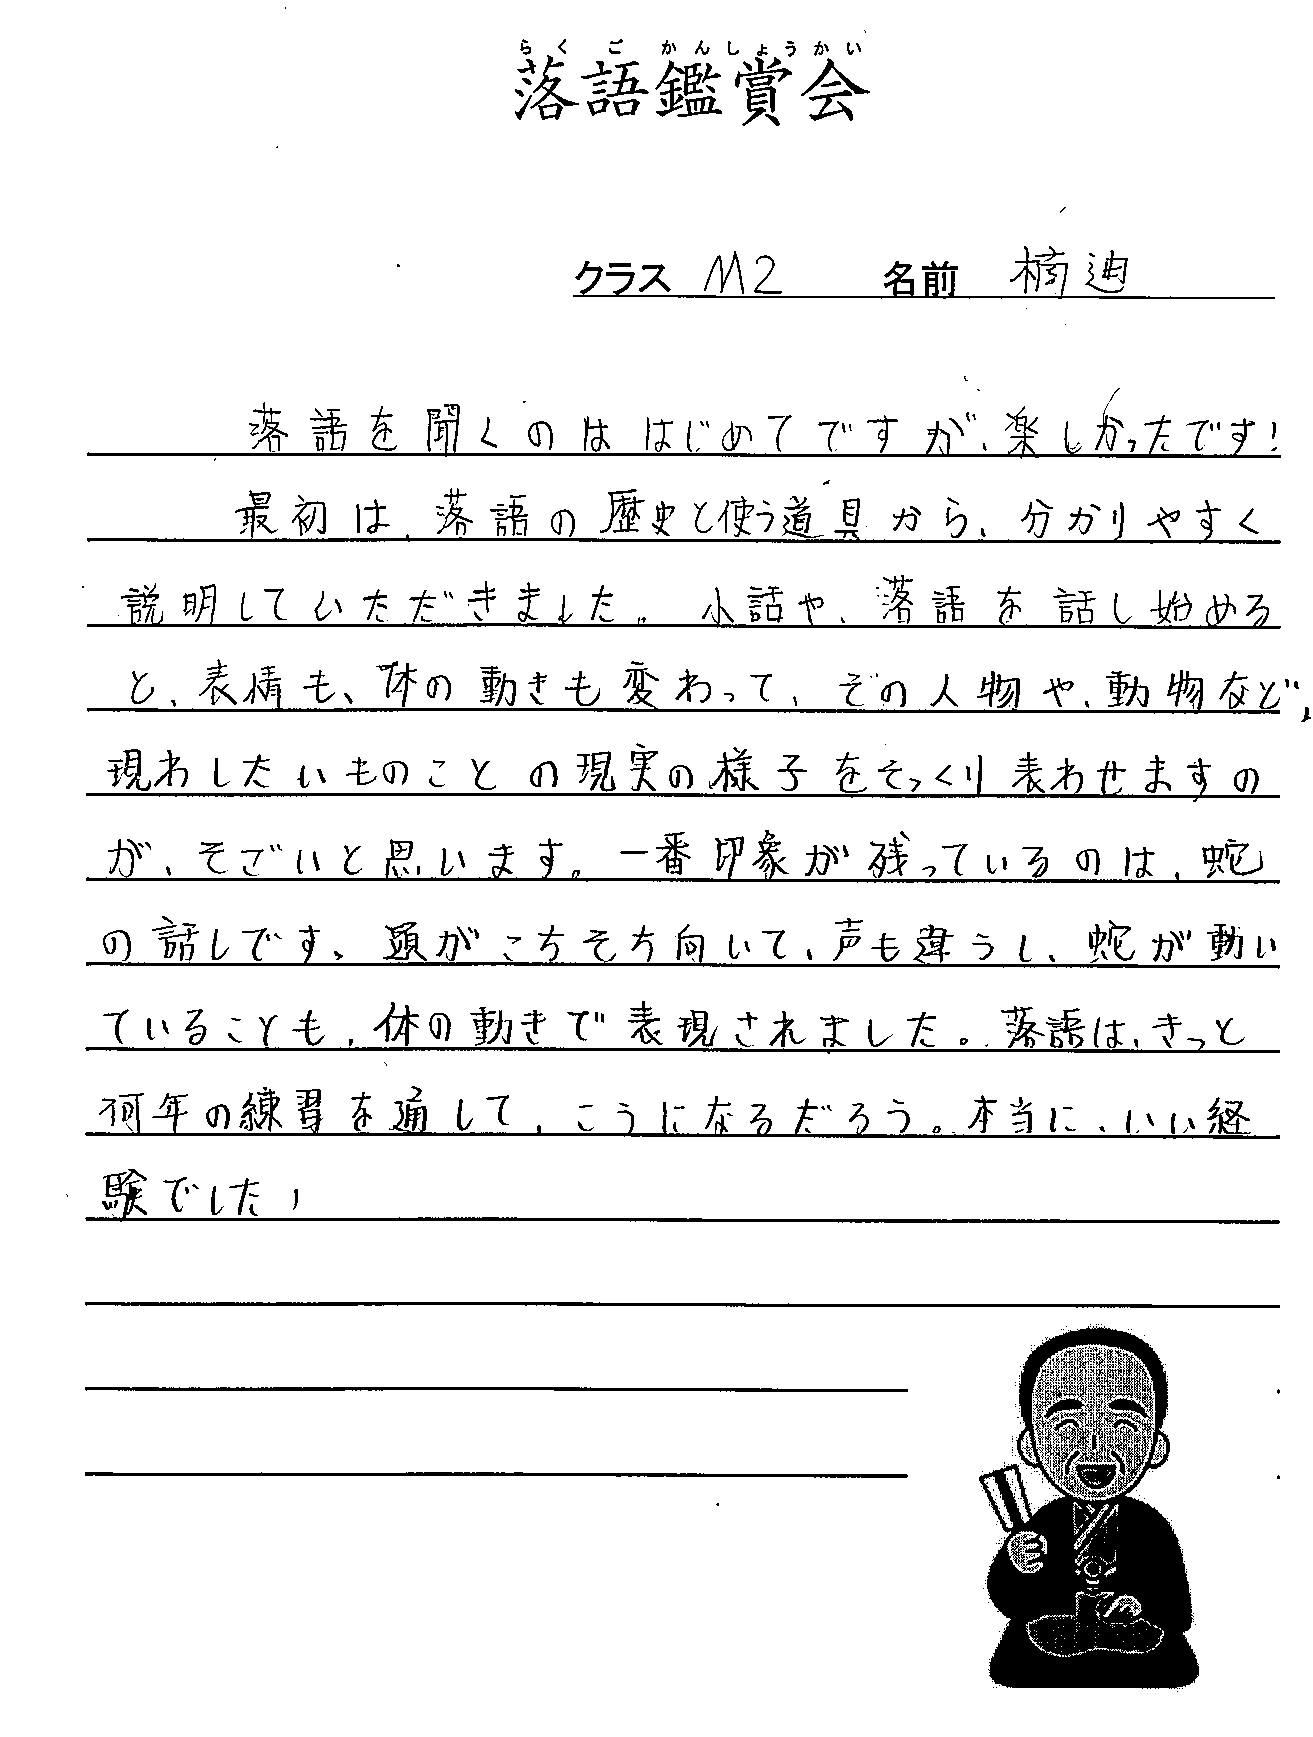 らくごかんしょうかい
落語鑑賞会
クラス M2 名前 楠迪
落語を聞くのははじめてですが、楽しかったです!
最初は、落語の歴史と使う道具から、分かりやすく
説明していただきました。小話や、落語を話し始める
と、表情も、体の動きも変わって、その人物や、動物など、
現わしたいものことの現実の様子をそっくり表わせますの
が、そごいと思います。一番印象が残っているのは、蛇
の話しです、頭がこちそち向いて、声も違うし、蛇が動い
ていることも、体の動きで表現されました。落語は、きっと
何年の練習を通して、こうになるだろう。本当に、いい経
験でした!